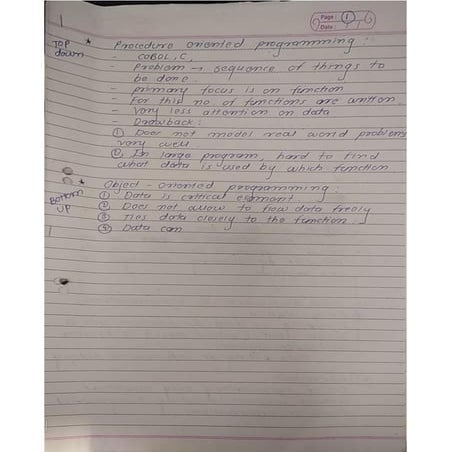 Page : 1
Date :
TOP down * Procedure oriented programming :
- COBOL, C,
- Problem → sequence of things to
be done.
- primary focus is on function
- For this no. of functions are written.
- Very less attention on data
- Drawback :
① Does not model real world problems
very well.
② In large program, hard to find
what data is used by which function
Bottom UP * Object - oriented programming :
① Data is critical element
② Does not allow to flow data freely
③ Ties data closely to the function.
④ Data can